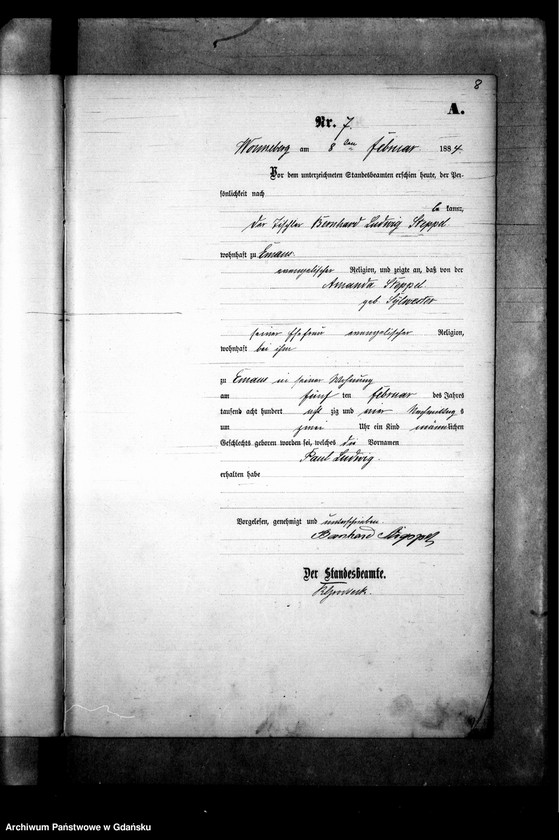 8
A.
Nr. 7.
Wonneberg am 8ten Februar 1884.
Vor dem unterzeichneten Standesbeamten erschien heute, der Per-
sönlichkeit nach
be kannt,
der Tischler Bernhard Ludwig Steppel
wohnhaft zu Emaus
evangelischer Religion, und zeigte an, daß von der
Amanda Steppel
geb. Sylvester
seiner Ehefrau evangelischer Religion,
wohnhaft bei ihm
zu Emaus in seiner Wohnung
am fünf ten Februar des Jahres
tausend acht hundert acht zig und vier Nachmittag s
um zwei Uhr ein Kind männlichen
Geschlechts geboren worden sei, welches die Vornamen
Paul Ludwig.
erhalten habe
Vorgelesen, genehmigt und unterschrieben.
Bernhard
Der Standesbeamte.
Archiwum Państwowe w Gdańsku